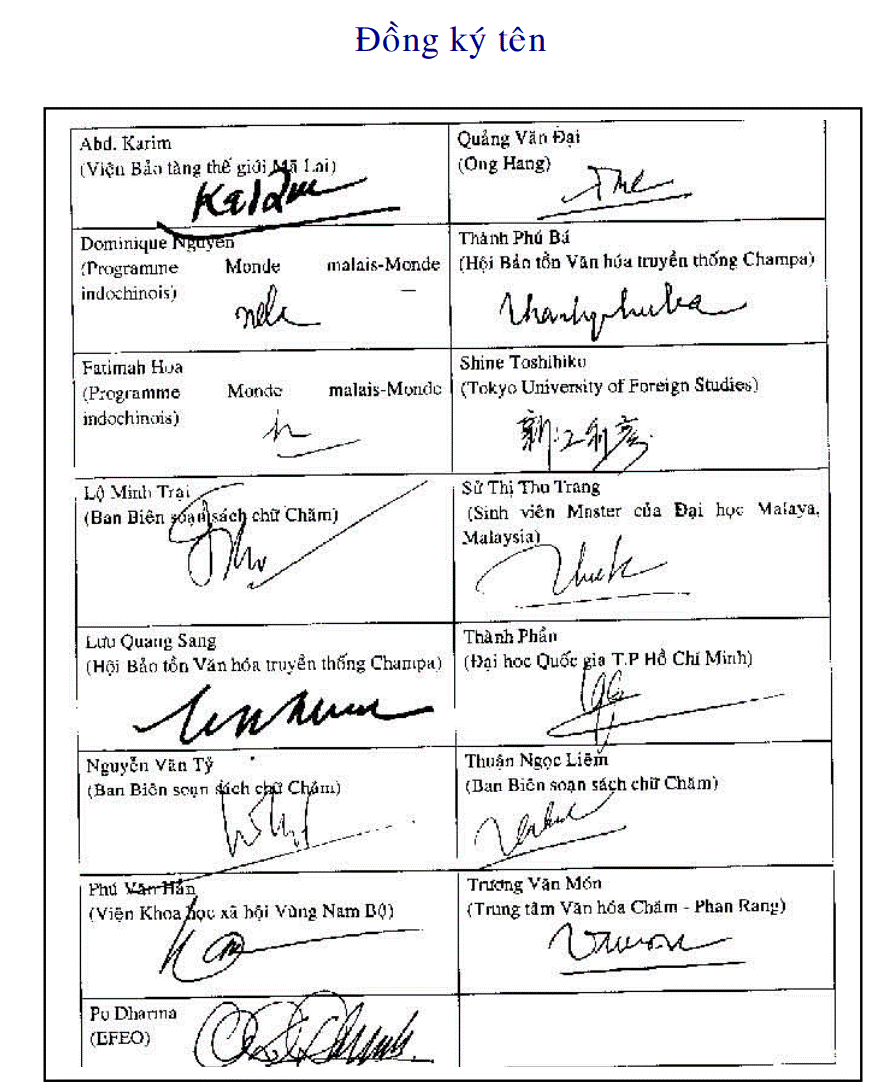 Đồng ký tên
Abd. Karim
(Viện Bảo tàng thế giới Mã Lai)
Quảng Văn Đại
(Ong Hang)
Dominique Nguyen
(Programme Monde malais-Monde
indochinois)
Thành Phú Bá
(Hội Bảo tồn Văn hóa truyền thống Champa)
Fatimah Hoa
(Programme Monde malais-Monde
indochinois)
Shine Toshihiko
(Tokyo University of Foreign Studies)
新江利彦
Lộ Minh Trại
(Ban Biên soạn sách chữ Chăm)
Sử Thị Thu Trang
(Sinh viên Master của Đại học Malaya,
Malaysia)
Lưu Quang Sang
(Hội Bảo tồn Văn hóa truyền thống Champa)
Thành Phần
(Đại hoc Quốc gia T.P Hồ Chí Minh)
Nguyễn Văn Tỷ
(Ban Biên soạn sách chữ Chăm)
Thuận Ngọc Liêm
(Ban Biên soạn sách chữ Chăm)
Phú Văn Hẳn
(Viện Khoa học xã hội Vùng Nam Bộ)
Trương Văn Món
(Trung tâm Văn hóa Chăm - Phan Rang)
Po Dharma
(EFEO)